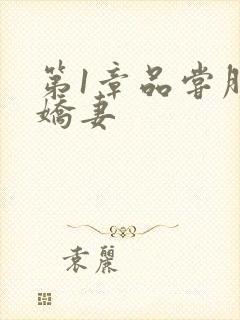 第1章品尝
娇妻
袁丽